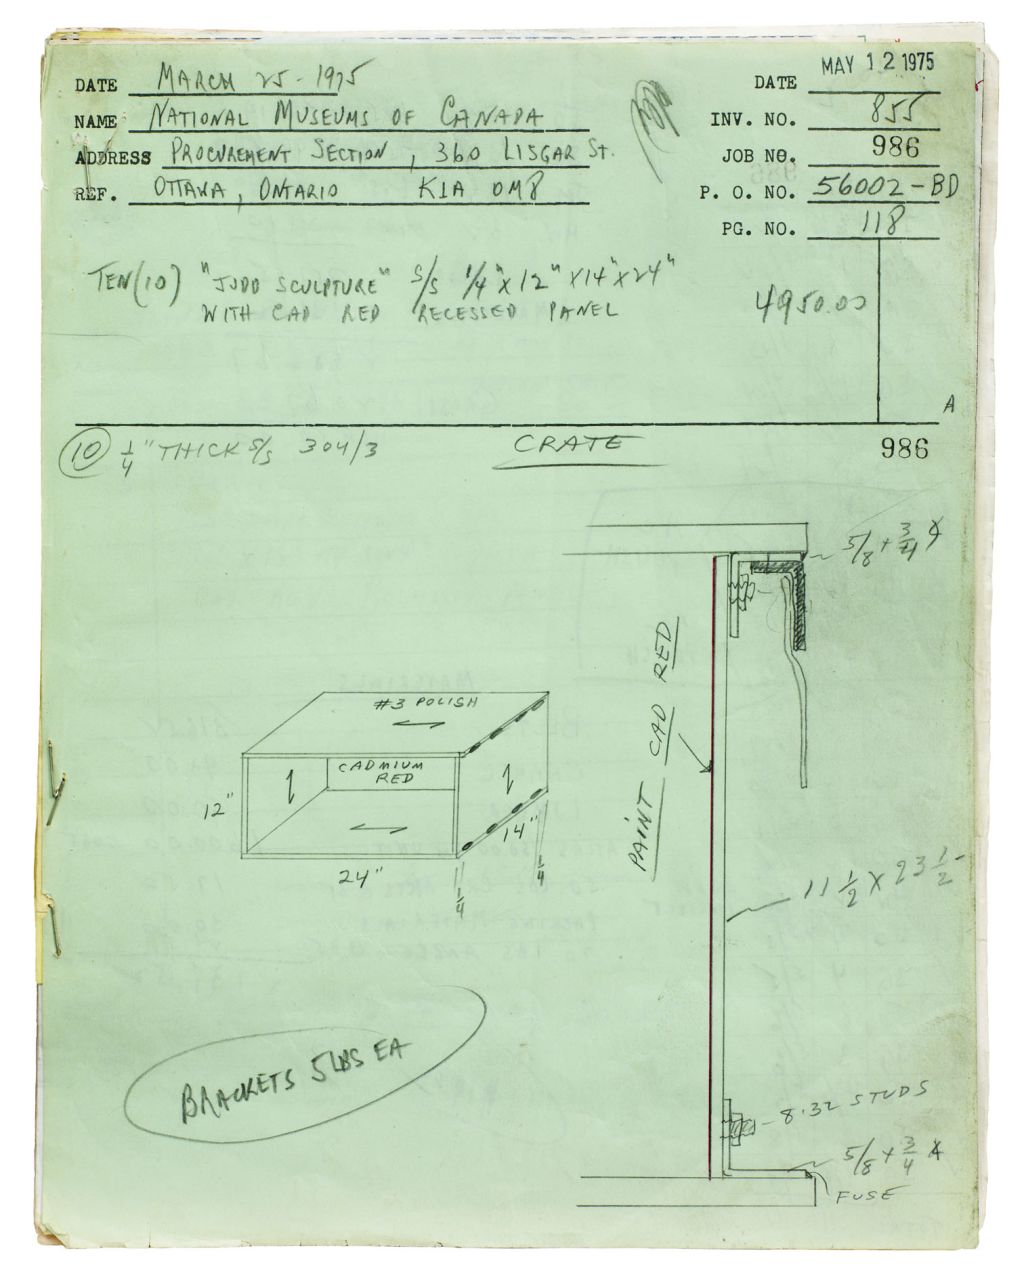 DATE MARCH 25-1975
NAME NATIONAL MUSEUMS OF CANADA
ADDRESS PROCUREMENT SECTION, 360 LISGAR ST.
REF. OTTAWA, ONTARIO K1A 0M8
MAY 12 1975
DATE
INV. NO. 855
JOB NO. 986
P. O. NO. 56002-BD
PG. NO. 118
TEN(10) "JUDD SCULPTURE" S/S 1/4" X 12" X 14" X 24"
WITH CAD RED RECESSED PANEL
4950.00
A
10 1/4" THICK S/S 304/3
CRATE
986
5/8 + 3/4
PAINT CAD RED
#3 POLISH
CADMIUM
RED
12"
14"
24"
1/4
1/4
11 1/2 X 23 1/2
BRACKETS 5 LBS EA
8.32 STUDS
5/8 + 3/4
FUSE